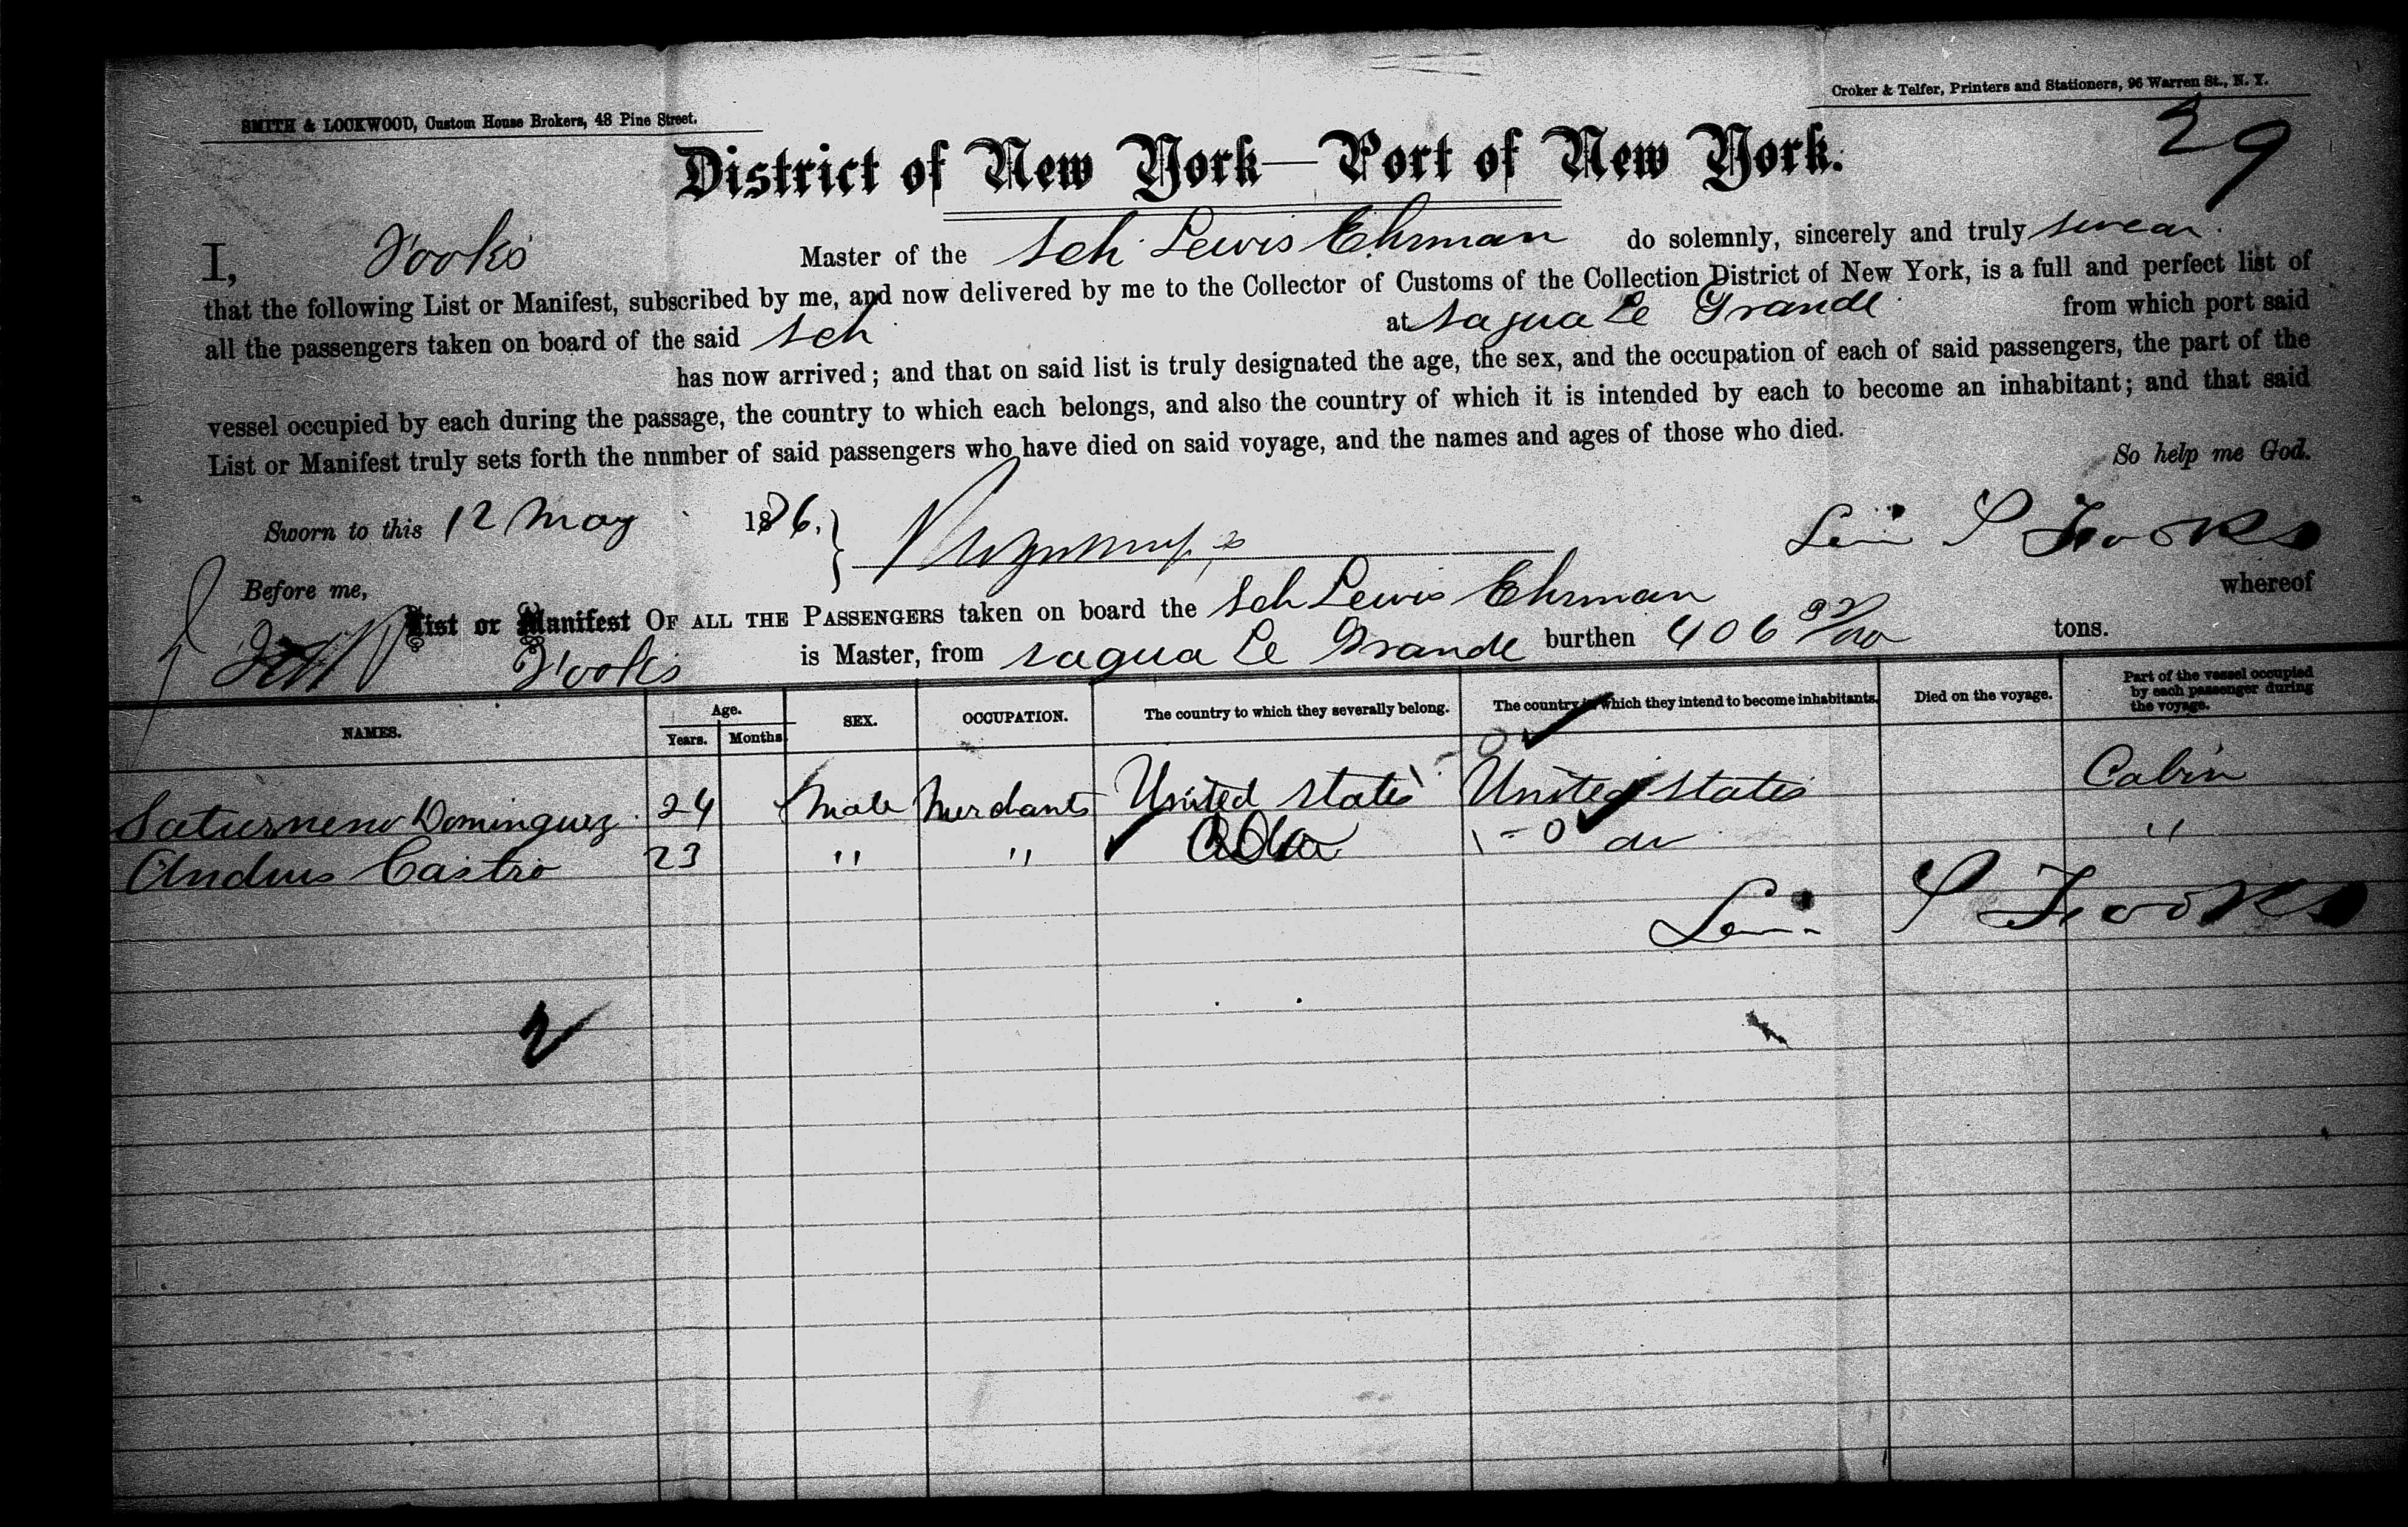 SMITH & LOCKWOOD, Custom House Brokers, 48 Pine Street.
Croker & Telfer, Printers and Stationers, 96 Warren St., N. Y.
39
District of New York—Port of New York.
I, Fooks Master of the Sch Lewis Ehrman do solemnly, sincerely and truly swear
that the following List or Manifest, subscribed by me, and now delivered by me to the Collector of Customs of the Collection District of New York, is a full and perfect list of
all the passengers taken on board of the said Sch at Sagua Le Grande from which port said
has now arrived; and that on said list is truly designated the age, the sex, and the occupation of each of said passengers, the part of the
vessel occupied by each during the passage, the country to which each belongs, and also the country of which it is intended by each to become an inhabitant; and that said
List or Manifest truly sets forth the nnmber of said passengers who have died on said voyage, and the names and ages of those who died.
So help me God.
Sworn to this 12 May 1886. S Fooks
Before me,
List or Manifest OF ALL THE PASSENGERS taken on board the Sch Lewis Ehrman whereof
Fooks is Master, from Sagua Le Grande burthen 406 tons.
NAMES. Age. Years. Months SEX. OCCUPATION. The country to which they severally belong. The country in which they intend to become inhabitants. Died on the voyage. Part of the vessel occupied by each passenger during the voyage.
Saturneno Dominguez 24 Male Merchants United States United States Cabin
Andres Castro 23 " " do "
S Fooks
2